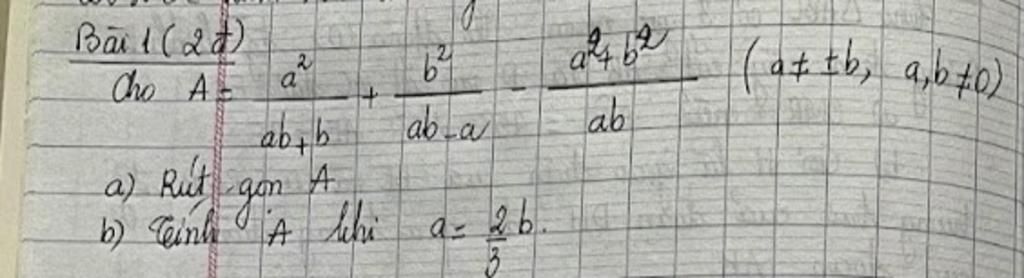 Bài 1 (2đ)
Cho A = a²/(ab+b) + b²/(ab-a) - (a²+b²)/ab (a ≠ ±b, a,b ≠ 0)
a) Rút gọn A
b) Tính A khi a = 2/3 b.